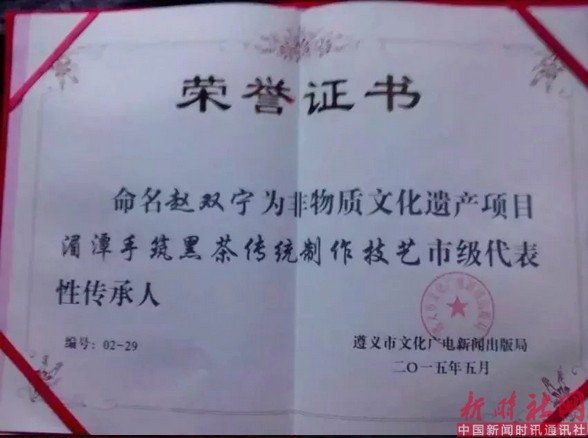 荣誉证书
命名赵双宁为非物质文化遗产项目
湄潭手筑黑茶传统制作技艺市级代表
性传承人
编号：02-29
遵义市文化广电新闻出版局
二〇一五年五月
新时社网
中国新闻时讯通讯社